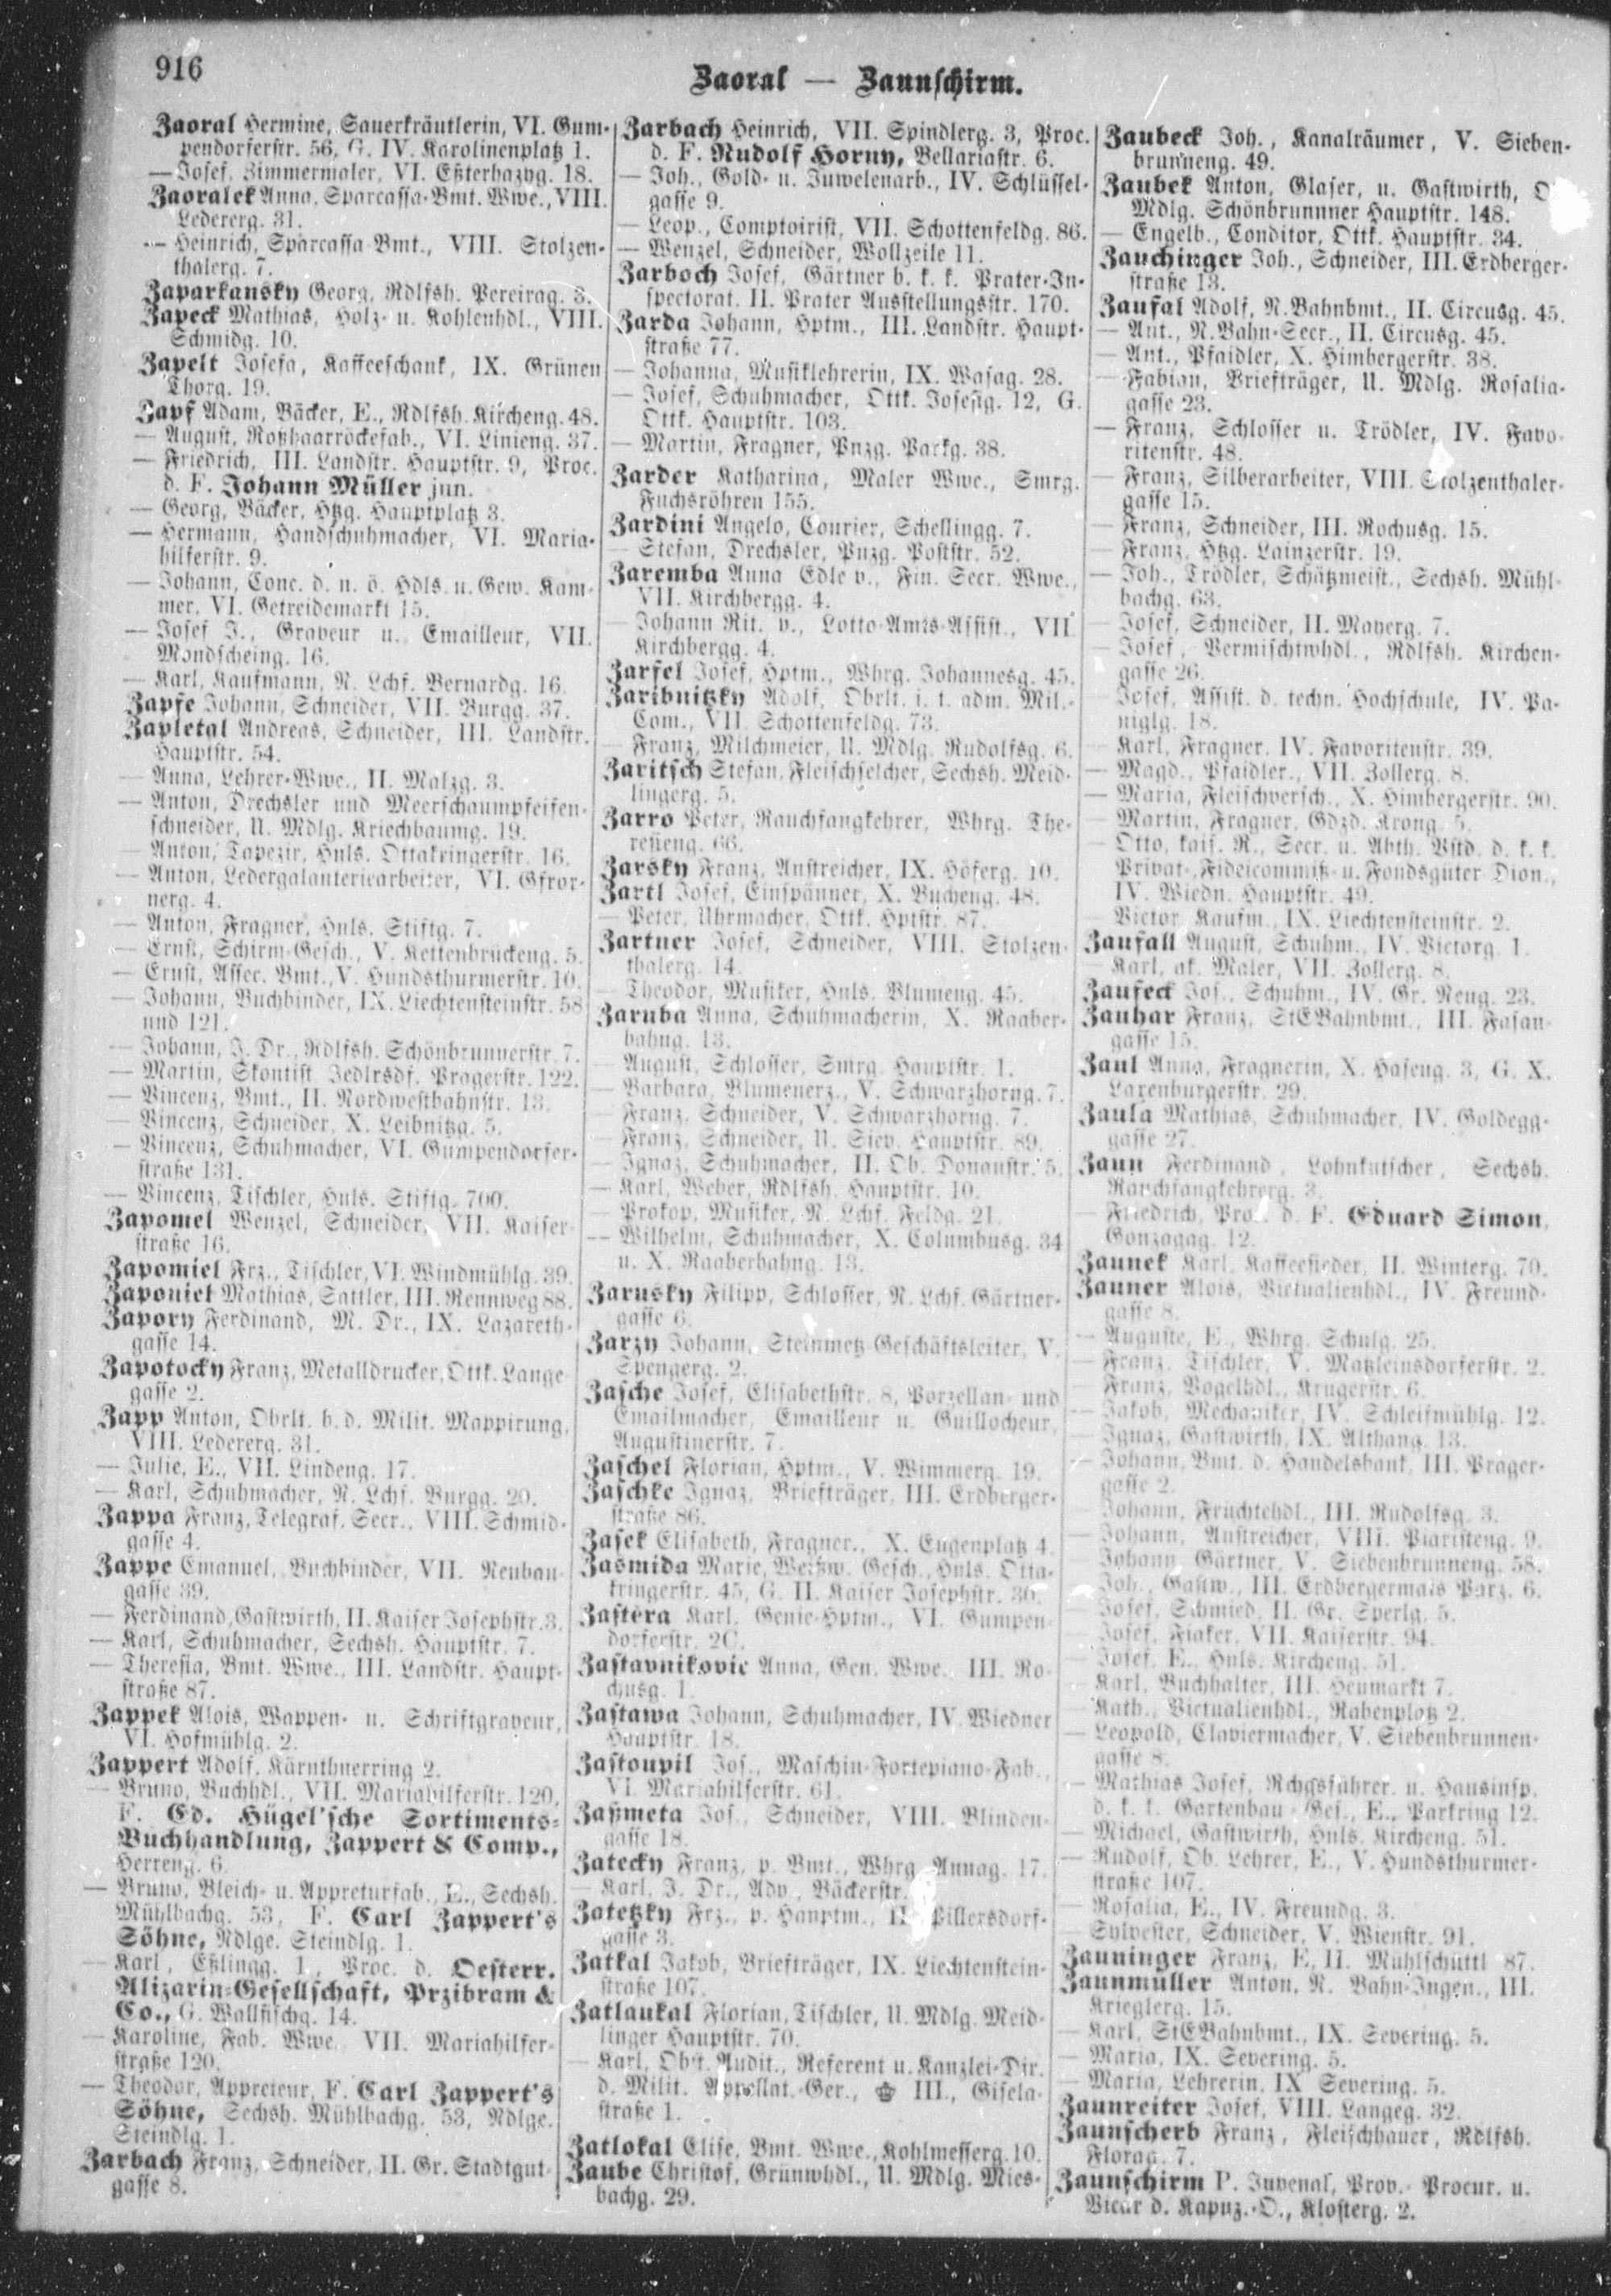 916
Zaoral — Zaunschirm.
Zaoral Hermine, Sauerkräutlerin, VI. Gum-
pendorferstr. 56, G. IV. Karolinenplatz 1.
— Josef, Zimmermaler, VI. Eßterhazyg. 18.
Zaoralek Anna, Sparcassa-Bmt. Wwe., VIII.
Ledererg. 31.
— Heinrich, Sparcassa-Bmt., VIII. Stolzen-
thalerg. 7.
Zaparkansky Georg, Rdlfsh. Pereirag. 3.
Zapeck Mathias, Holz- u. Kohlenhdl., VIII.
Schmidg. 10.
Zapelt Josefa, Kaffeeschank, IX. Grünen
Thorg. 19.
Zapf Adam, Bäcker, E., Rdlfsh. Kircheng. 48.
— August, Roßhaarröckefab., VI. Linieng. 37.
— Friedrich, III. Landstr. Hauptstr. 9, Proc.
d. F. Johann Müller jun.
— Georg, Bäcker, Htzg. Hauptplatz 3.
— Hermann, Handschuhmacher, VI. Maria-
hilferstr. 9.
— Johann, Conc. d. n. ö. Hdls. u. Gew. Kam-
mer, VI. Getreidemarkt 15.
— Josef J., Graveur u. Emailleur, VII.
Mondscheing. 16.
— Karl, Kaufmann, N. Lchf. Bernardg. 16.
Zapfe Johann, Schneider, VII. Burgg. 37.
Zapletal Andreas, Schneider, III. Landstr.
Hauptstr. 54.
— Anna, Lehrer-Wwe., II. Malzg. 3.
— Anton, Drechsler und Meerschaumpfeifen-
schneider, U. Mdlg. Kriechbaumg. 19.
— Anton, Tapezir, Hnls. Ottakringerstr. 16.
— Anton, Ledergalanteriearbeiter, VI. Gfror-
nerg. 4.
— Anton, Fragner, Hnls. Stiftg. 7.
— Ernst, Schirm-Gesch., V. Kettenbrückeng. 5.
— Ernst, Assec. Bmt., V. Hundsthurmerstr. 10.
— Johann, Buchbinder, IX. Liechtensteinstr. 58
und 121.
— Johann, J. Dr., Rdlfsh. Schönbrunnerstr. 7.
— Martin, Skontist Jedlrsdf. Pragerstr. 122.
— Vincenz, Bmt., II. Nordwestbahnstr. 13.
— Vincenz, Schneider, X. Leibnitzg. 5.
— Vincenz, Schuhmacher, VI. Gumpendorfer-
straße 131.
— Vincenz, Tischler, Hnls. Stiftg. 700.
Zapomel Wenzel, Schneider, VII. Kaiser-
straße 16.
Zapomiel Frz., Tischler, VI. Windmühlg. 39.
Zaponiel Mathias, Sattler, III. Rennweg 88.
Zapory Ferdinand, M. Dr., IX. Lazareth-
gasse 14.
Zapotocky Franz, Metalldrucker, Ottk. Lange
gasse 2.
Zapp Anton, Obrlt. b. d. Milit. Mappirung,
VIII. Ledererg. 31.
— Julie, E., VII. Lindeng. 17.
— Karl, Schuhmacher, N. Lchf. Burgg. 20.
Zappa Franz, Telegraf. Secr., VIII. Schmid-
gasse 4.
Zappe Emanuel, Buchbinder, VII. Neubau-
gasse 39.
— Ferdinand, Gastwirth, II. Kaiser Josephstr. 3.
— Karl, Schuhmacher, Sechsh. Hauptstr. 7.
— Theresia, Bmt. Wwe., III. Landstr. Haupt-
straße 87.
Zappek Alois, Wappen- u. Schriftgraveur,
VI. Hofmühlg. 2.
Zappert Adolf, Kärnthnerring 2.
— Bruno, Buchhdl., VII. Mariahilferstr. 120,
F. Ed. Hügel'sche Sortiments-
Buchhandlung, Zappert & Comp.,
Herreng. 6.
— Bruno, Bleich- u. Appreturfab., E., Sechsh.
Mühlbachg. 53, F. Carl Zappert's
Söhne, Ndlge. Steindlg. 1.
— Karl, Eßlingg. 1, Proc. d. Oesterr.
Alizarin-Gesellschaft, Przibram &
Co., G. Wallfischg. 14.
— Karoline, Fab. Wwe. VII. Mariahilfer-
straße 120.
— Theodor, Appreteur, F. Carl Zappert's
Söhne, Sechsh. Mühlbachg. 53, Ndlge.
Steindlg. 1.
Zarbach Franz, Schneider, II. Gr. Stadtgut-
gasse 8.
Zarbach Heinrich, VII. Spindlerg. 3, Proc.
d. F. Rudolf Horny, Bellariastr. 6.
— Joh., Gold- u. Juwelenarb., IV. Schlüssel-
gasse 9.
— Leop., Comptoirist, VII. Schottenfeldg. 86.
— Wenzel, Schneider, Wollzeile 11.
Zarboch Josef, Gärtner b. k. k. Prater-In-
spectorat, II. Prater Ausstellungsstr. 170.
Zarda Johann, Hptm., III. Landstr. Haupt-
straße 77.
— Johanna, Musiklehrerin, IX. Wasag. 28.
— Josef, Schuhmacher, Ottk. Josefig. 12, G.
Ottk. Hauptstr. 103.
— Martin, Fragner, Pnzg. Parkg. 38.
Zarder Katharina, Maler Wwe., Smrg.
Fuchsröhren 155.
Zardini Angelo, Courier, Schellingg. 7.
— Stefan, Drechsler, Pnzg. Poststr. 52.
Zaremba Anna Edle v., Fin. Secr. Wwe.,
VII. Kirchbergg. 4.
— Johann Rit. v., Lotto-Amts-Assist., VII.
Kirchbergg. 4.
Zarfel Josef, Hptm., Whrg. Johannesg. 45.
Zaribnitzky Adolf, Obrlt. i. t. adm. Mil.-
Com., VII. Schottenfeldg. 73.
— Franz, Milchmeier, U. Mdlg. Rudolfsg. 6.
Zaritsch Stefan, Fleischselcher, Sechsh. Meid-
lingerg. 5.
Zarro Peter, Rauchfangkehrer, Whrg. The-
resieng. 66.
Zarsky Franz, Anstreicher, IX. Höferg. 10.
Zartl Josef, Einspänner, X. Bucheng. 48.
— Peter, Uhrmacher, Ottk. Hptstr. 87.
Zartner Josef, Schneider, VIII. Stolzen-
thalerg. 14.
— Theodor, Musiker, Hnls. Blumeng. 45.
Zaruba Anna, Schuhmacherin, X. Raaber-
bahng. 13.
— August, Schlosser, Smrg. Hauptstr. 1.
— Barbara, Blumenerz., V. Schwarzhorng. 7.
— Franz, Schneider, V. Schwarzhorng. 7.
— Franz, Schneider, U. Siev. Hauptstr. 89.
— Ignaz, Schuhmacher, II. Ob. Donaustr. 5.
— Karl, Weber, Rdlfsh. Hauptstr. 10.
— Prokop, Musiker, N. Lchf. Feldg. 21.
— Wilhelm, Schuhmacher, X. Columbusg. 34
u. X. Raaberbahng. 13.
Zarusky Filipp, Schlosser, N. Lchf. Gärtner-
gasse 6.
Zarzy Johann, Steinmetz-Geschäftsleiter, V.
Spengerg. 2.
Zasche Josef, Elisabethstr. 8, Porzellan- und
Emailmacher, Emailleur u. Guillocheur,
Augustinerstr. 7.
Zaschel Florian, Hptm., V. Wimmerg. 19.
Zaschke Ignaz, Briefträger, III. Erdberger-
straße 86.
Zasek Elisabeth, Fragner., X. Eugenplatz 4.
Zasmida Marie, Weißw. Gesch., Hnls. Otta-
kringerstr. 45, G. II. Kaiser Josephstr. 36.
Zastera Karl, Genie-Hptm., VI. Gumpen-
dorferstr. 20.
Zastavnikovic Anna, Gen. Wwe., III. Ro-
chusg. 1.
Zastawa Johann, Schuhmacher, IV. Wiedner
Hauptstr. 18.
Zastoupil Jos., Maschin-Fortepiano-Fab.,
VI. Mariahilferstr. 61.
Zaßmeta Jos., Schneider, VIII. Blinden-
gasse 18.
Zatecky Franz, p. Bmt., Whrg. Annag. 17.
— Karl, J. Dr., Adv., Bäckerstr.
Zatetzky Frz., p. Hauptm., II. Pillersdorf-
gasse 3.
Zatkal Jakob, Briefträger, IX. Liechtenstein-
straße 107.
Zatlaukal Florian, Tischler, U. Mdlg. Meid-
linger Hauptstr. 70.
— Karl, Obst. Audit., Referent u. Kanzlei-Dir.
d. Milit. Appellat.-Ger., III., Gisela-
straße 1.
Zatlokal Elise, Bmt. Wwe., Kohlmesserg. 10.
Zaube Christof, Grünwhdl., U. Mdlg. Mies-
bachg. 29.
Zaubeck Joh., Kanalräumer, V. Sieben-
brunneng. 49.
Zaubek Anton, Glaser, u. Gastwirth,
Mdlg. Schönbrunnner Hauptstr. 148.
— Engelb., Conditor, Ottk. Hauptstr. 34.
Zauchinger Joh., Schneider, III. Erdberger-
straße 13.
Zaufal Adolf, N. Bahnbmt., II. Circusg. 45.
— Ant., N. Bahn-Secr., II. Circusg. 45.
— Ant., Pfaidler, X. Himbergerstr. 38.
— Fabian, Briefträger, U. Mdlg. Rosalia-
gasse 23.
— Franz, Schlosser u. Trödler, IV. Favo-
ritenstr. 48.
— Franz, Silberarbeiter, VIII. Stolzenthaler-
gasse 15.
— Franz, Schneider, III. Rochusg. 15.
— Franz, Htzg. Lainzerstr. 19.
— Joh., Trödler, Schätzmeist., Sechsh. Mühl-
bachg. 63.
— Josef, Schneider, II. Mayerg. 7.
— Josef, Vermischtwhdl., Rdlfsh. Kirchen-
gasse 26.
— Josef, Assist. d. techn. Hochschule, IV. Pa-
niglg. 18.
— Karl, Fragner, IV. Favoritenstr. 39.
— Magd., Pfaidler., VII. Zollerg. 8.
— Maria, Fleischversch., X. Himbergerstr. 90.
— Martin, Fragner, Gdzd. Krong. 5.
— Otto, kais. R., Secr. u. Abth. Vstd. d. k. k.
Privat-, Fideicommiß- u. Fondsgüter Dion.,
IV. Wiedn. Hauptstr. 49.
— Victor, Kaufm., IX. Liechtensteinstr. 2.
Zaufall August, Schuhm., IV. Victorg. 1.
— Karl, ak. Maler, VII. Zollerg. 8.
Zaufeck Jos., Schuhm., IV. Gr. Neug. 23.
Zauhar Franz, StEBahnbmt., III. Fasan-
gasse 15.
Zaul Anna, Fragnerin, X. Haseng. 3, G. X.
Laxenburgerstr. 29.
Zaula Mathias, Schuhmacher, IV. Goldegg-
gasse 27.
Zaun Ferdinand, Lohnkutscher, Sechsh.
Rauchfangkehrerg. 3.
— Friedrich, Proc. d. F. Eduard Simon,
Gonzagag. 12.
Zaunek Karl, Kaffeesieder, II. Winterg. 70.
Zauner Alois, Victualienhdl., IV. Freund-
gasse 8.
— Auguste, E., Whrg. Schulg. 25.
— Franz, Tischler, V. Matzleinsdorferstr. 2.
— Franz, Vogelhdl., Krugerstr. 6.
— Jakob, Mechaniker, IV. Schleifmühlg. 12.
— Ignaz, Gastwirth, IX. Althang. 13.
— Johann, Bmt. d. Handelsbank, III. Prager-
gasse 2.
— Johann, Früchtehdl., III. Rudolfsg. 3.
— Johann, Anstreicher, VIII. Piaristeng. 9.
— Johann, Gärtner, V. Siebenbrunneng. 58.
— Joh., Gastw., III. Erdbergermais Parz. 6.
— Josef, Schmied, II. Gr. Sperlg. 5.
— Josef, Fiaker, VII. Kaiserstr. 94.
— Josef, E., Hnls. Kircheng. 51.
— Karl, Buchhalter, III. Heumarkt 7.
— Kath., Victualienhdl., Rabenplatz 2.
— Leopold, Claviermacher, V. Siebenbrunnen-
gasse 8.
— Mathias Josef, Rchgsführer. u. Hausinsp.
d. k. k. Gartenbau-Ges., E., Parkring 12.
— Michael, Gastwirth, Hnls. Kircheng. 51.
— Rudolf, Ob. Lehrer, E., V. Hundsthurmer-
straße 107.
— Rosalia, E., IV. Freundg. 3.
— Sylvester, Schneider, V. Wienstr. 91.
Zauninger Franz, E, II. Mühlschüttl 87.
Zaunmüller Anton, N. Bahn-Ingen., III.
Krieglerg. 15.
— Karl, StEBahnbmt., IX. Severing. 5.
— Maria, IX. Severing. 5.
— Maria, Lehrerin, IX Severing. 5.
Zaunreiter Josef, VIII. Langeg. 32.
Zaunscherb Franz, Fleischhauer, Rdlfsh.
Florag. 7.
Zaunschirm P. Juvenal, Prov.- Procur. u.
Vicar d. Kapuz.-O., Klosterg. 2.